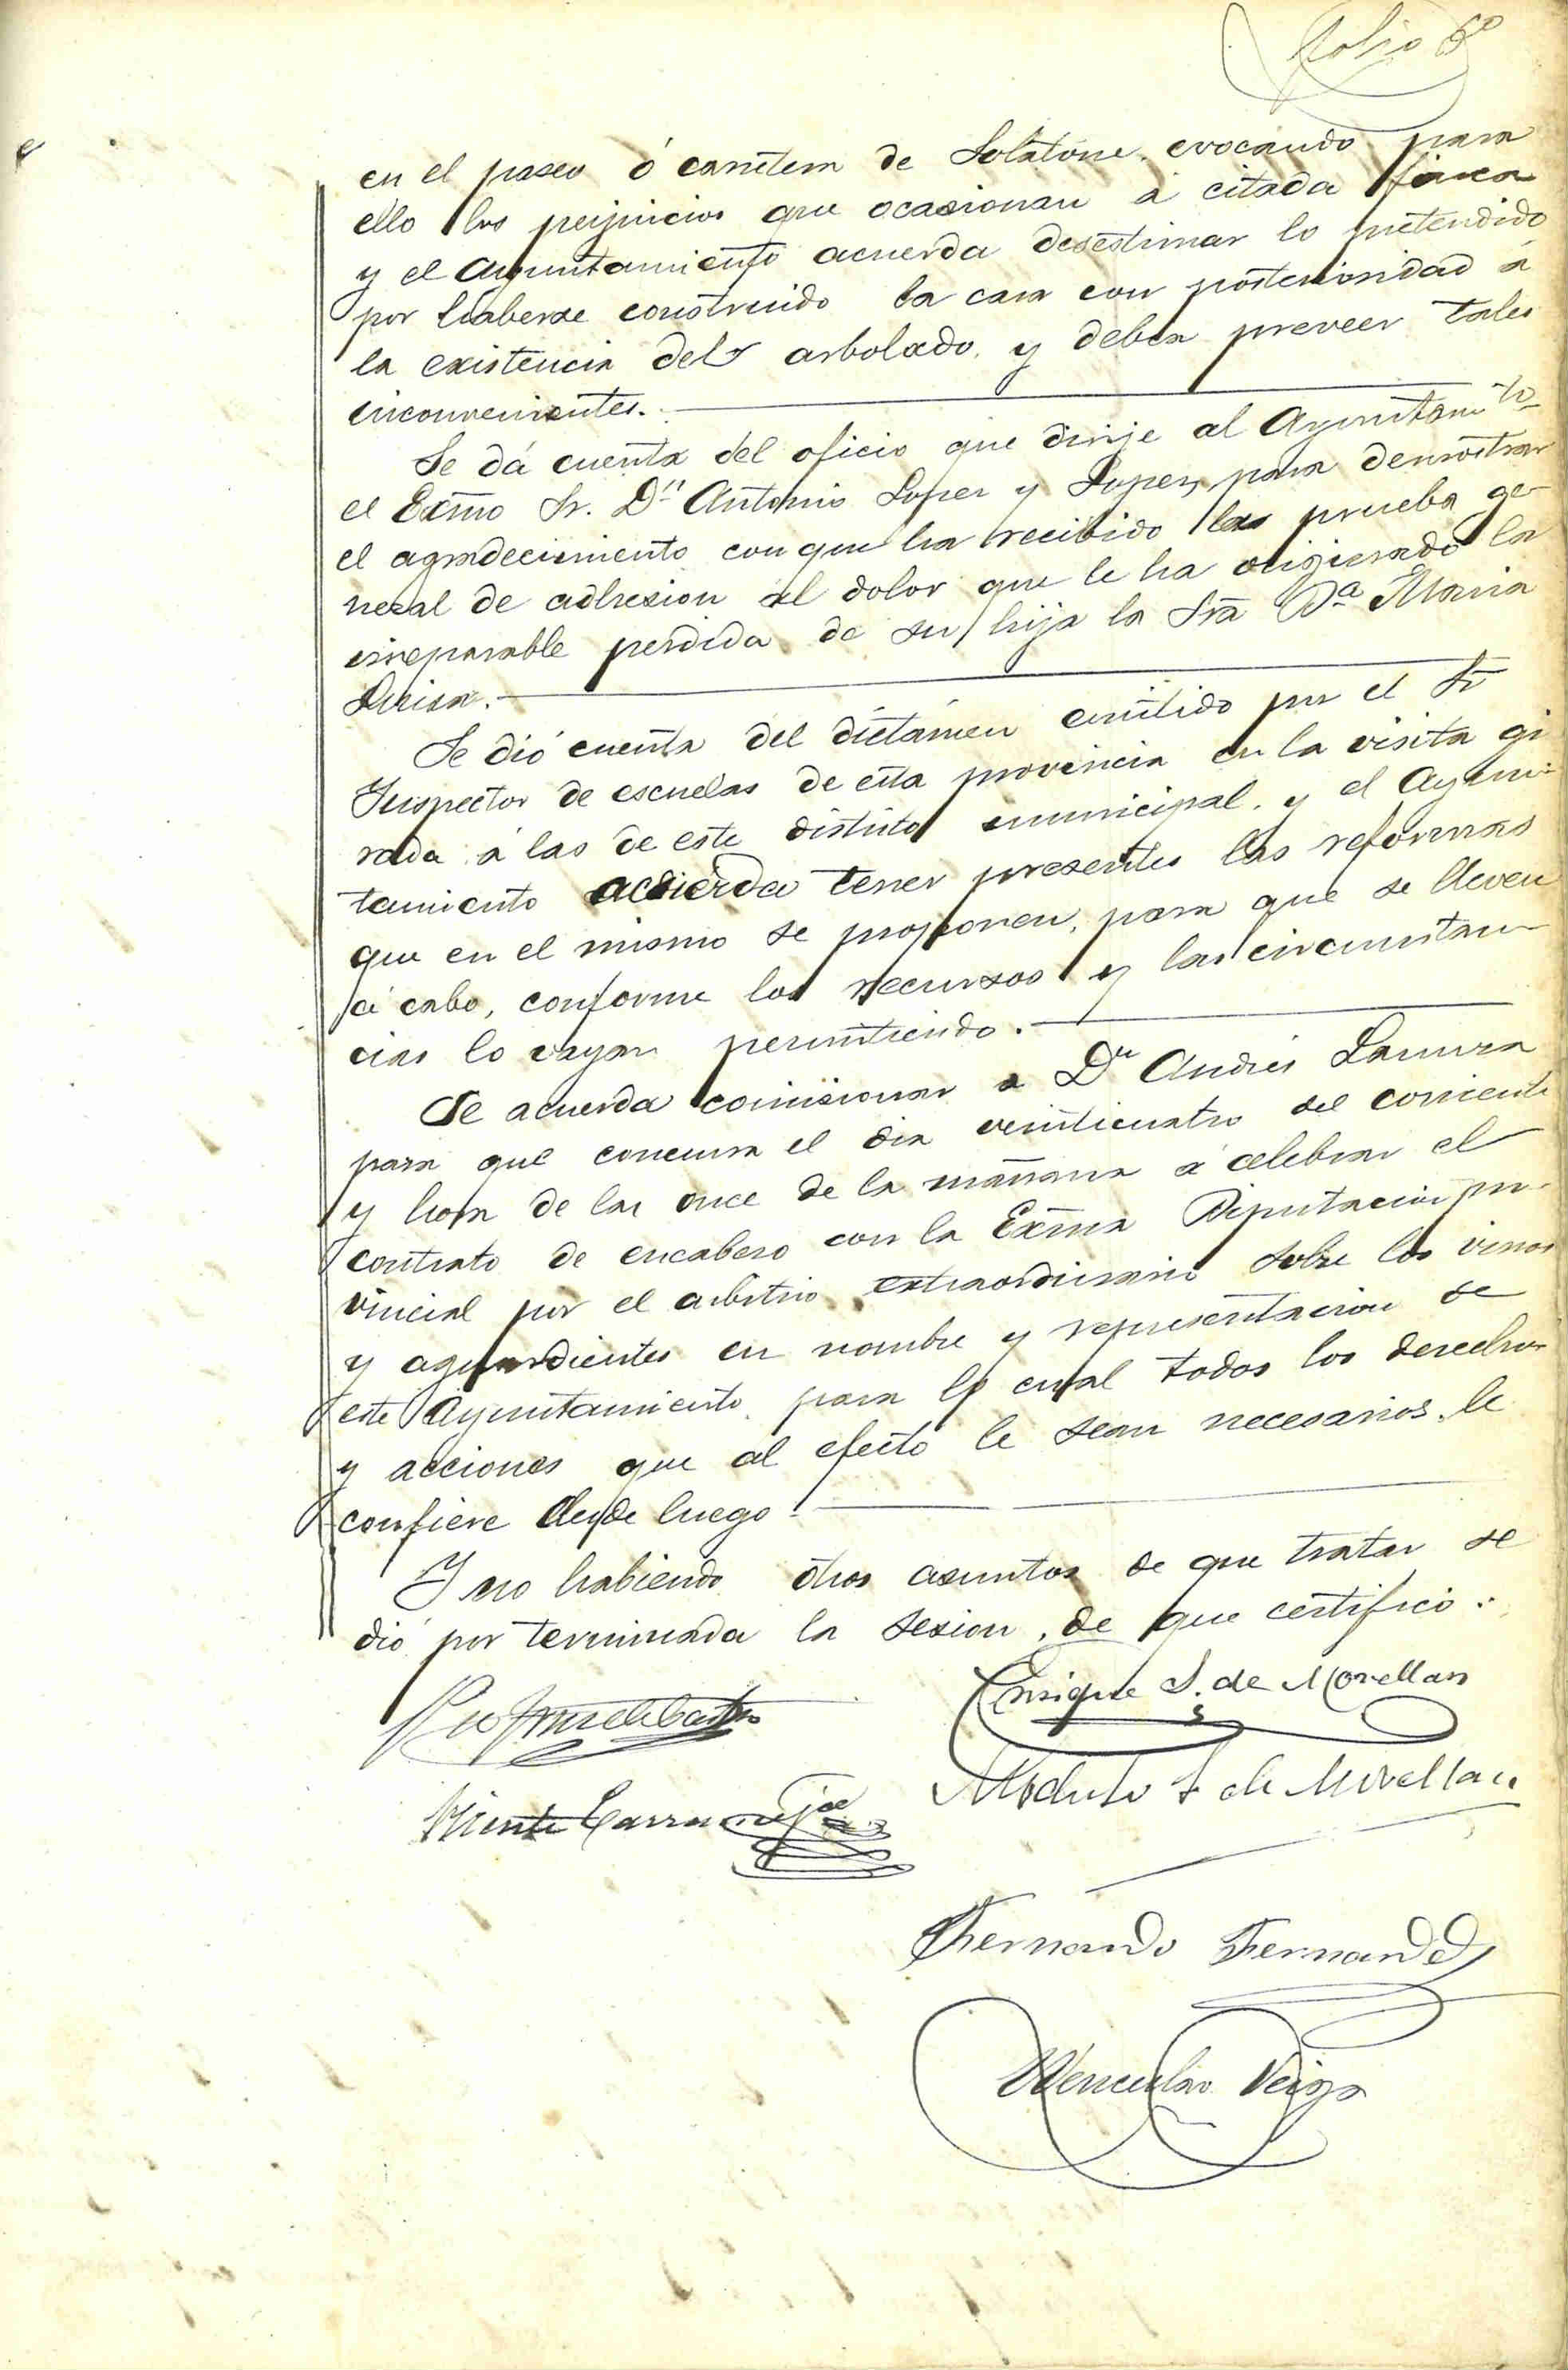 folio 6º
en el paseo ó carretera de Solatorre, evocando para
ello los perjuicios que ocasionan á citada finca
y el Ayuntamiento acuerda desestimar lo pretendido
por haberse construido la casa con posterioridad á
la existencia del arbolado, y debia preveer tales
inconvenientes.
Se dá cuenta del oficio que dirije al Ayuntamto
el Exmo Sr. Dn Antonio Lopez y Lopez, para demostrar
el agradecimiento con que ha recibido la prueba ge-
neral de adhesion al dolor que le ha originado la
irreparable perdida de su hija la Sra Dª Maria
Luisa.
Se dió cuenta del dictámen emitido por el Sr
Inspector de escuelas de esta provincia en la visita gi
rada á las de este distrito municipal, y el Ayun-
tamiento acuerda tener presentes las reformas
que en el mismo se proponen, para que se lleven
á cabo, conforme los recursos y las circunstan-
cias lo vayan permitiendo.
Se acuerda comisionar a Dn Andrés Lamura
para que concurra el dia veinticuatro del corriente
y hora de las once de la mañana á celebrar el
contrato de encabezo con la Exma Diputacion pro-
vincial por el arbitrio extraordinario sobre los vinos
y aguardientes en nombre y representacion de
este Ayuntamiento, para lo cual todos los derechos
y acciones que al efecto le sean necesarios, le
confiere desde luego.
Y no habiendo otros asuntos de que tratar se
dió por terminada la sesion, de que certifico.
Enrique S. de Movellan
Modesto S de Movellan
Vicente Carranceja
Fernando Fernandez
Wenceslao Veiga